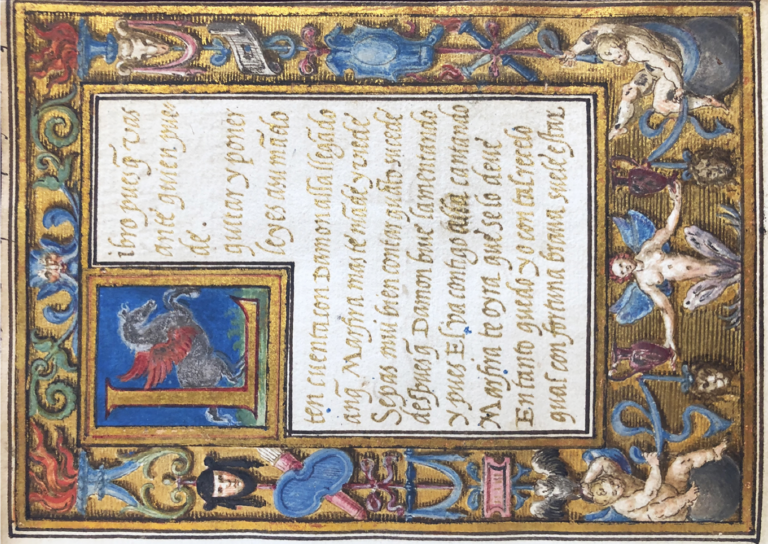 Libro pues q̃ vas
ante quien pue-
de.
quitar y poner
leyes aun mãdo
ten cuenta con Damon alla llegãdo
anq̃ Marfira mas te mãde y vede
Sepas mui bien contar quãto sucede
despues q̃ Damon bive lamentando
y pues El va contigo alla cantando
Marfira te oyra que se lo deve
Entanto quedo yo con tal recelo
qual con fortuna brava suele